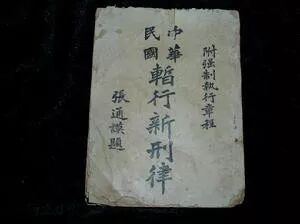 附强制执行章程
中華
民國
暫行新刑律
張通謨題